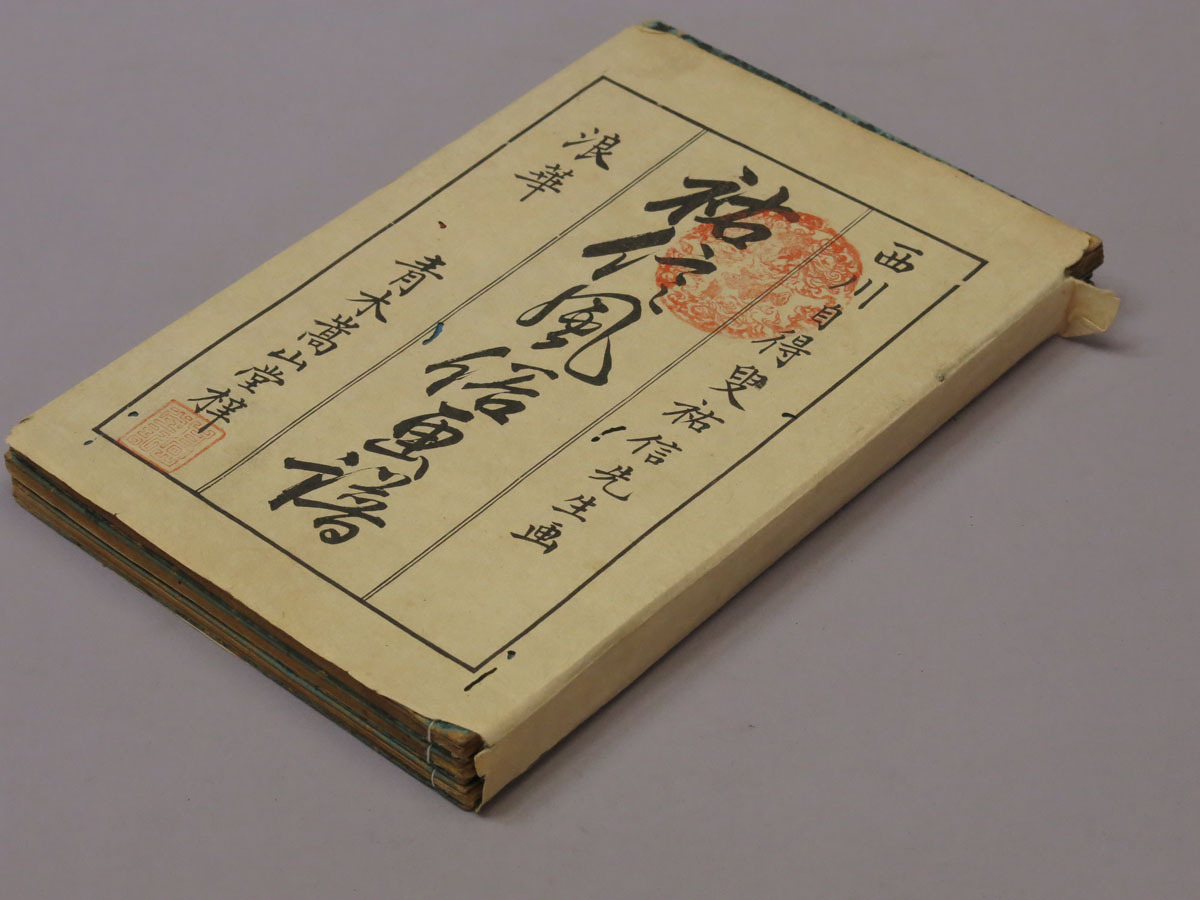 西川自得叟祐信先生画
祐信風俗画譜
浪華 青木嵩山堂梓